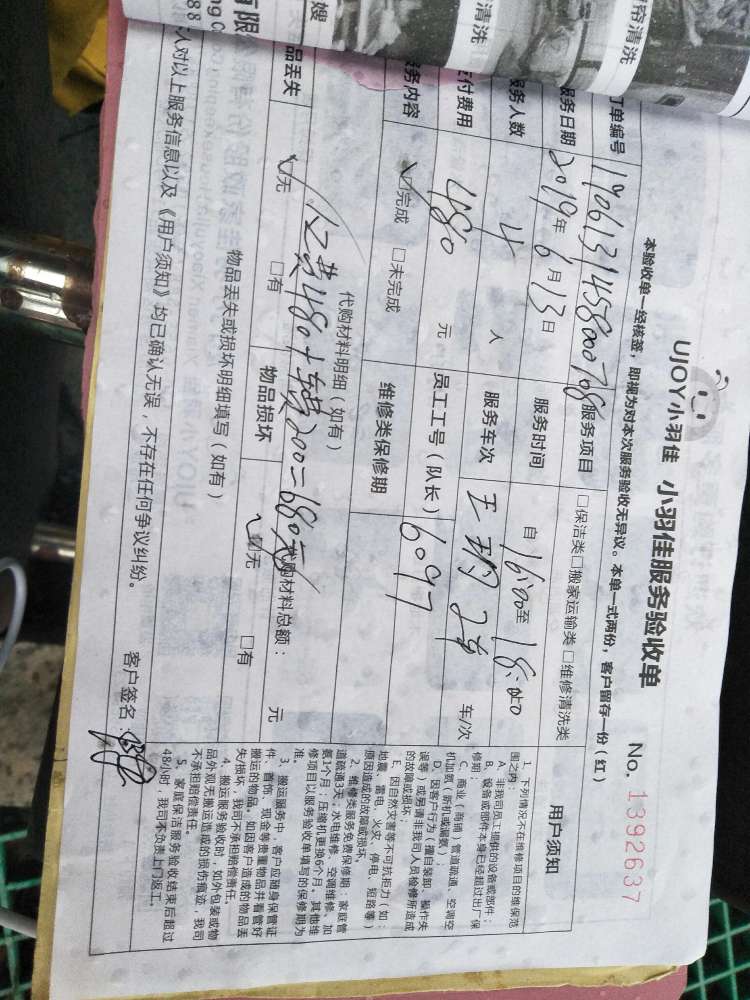 UJOY小羽佳 小羽佳服务验收单
No. 1392637
本验收单一经核签，即视为对本次服务验收无异议。本单一式两份，客户留存一份（红）
订单编号 190613145800708 服务项目 □保洁类□搬家运输类□维修清洗类
服务日期 2019年6月13日 服务时间 自16:00至18:00
服务人数 4人 服务车次 2车 车/次
支付费用 480元 员工工号（队长） 6097
服务内容 ☑完成 □未完成 维修类保修期
代购材料明细（如有）
480+ 200=680元 代购材料总额： 元
物品丢失 ☑无 □有 物品损坏 ☑无 □有
物品丢失或损坏明细填写（如有）
人对以上服务信息以及《用户须知》均已确认无误，不存在任何争议纠纷。
客户签名：
用户须知
1、下列情况不在维修项目的维保范
围之内：
A、非我司员工提供的设备或部件；
B、设备或部件本身已经超过出厂保
修期；
C、商业（商铺）管道疏通、空调空
机加氨（拆机或漏氨）；
D、因客户行为（擅自装卸、操作失
误等）或另请非我司人员检修所造成
的故障或损坏；
E、因自然灾害等不可抗拒力（如：
地震、雷电、火灾、停电、短路等）
原因造成的故障或损坏。
2、维修类服务免费保修期：家庭管
道疏通3天；水电维修、空调维修、加
氨1个月；压缩机更换6个月。其他维
修项目以服务验收单填写的保修期为
准。
3、搬运服务中，客户应随身保管证
件、首饰、现金等贵重物品并看管好
搬运的物品，如因客户造成的物品丢
失/损坏，我司不承担赔偿责任。
4、搬运服务验收时，如外包装或物
品外观无搬运造成的损伤痕迹，我司
不承担赔偿责任。
5、家庭保洁服务验收结束后超过
48小时，我司不负责上门返工。
清洗
清洗
嫂
有限